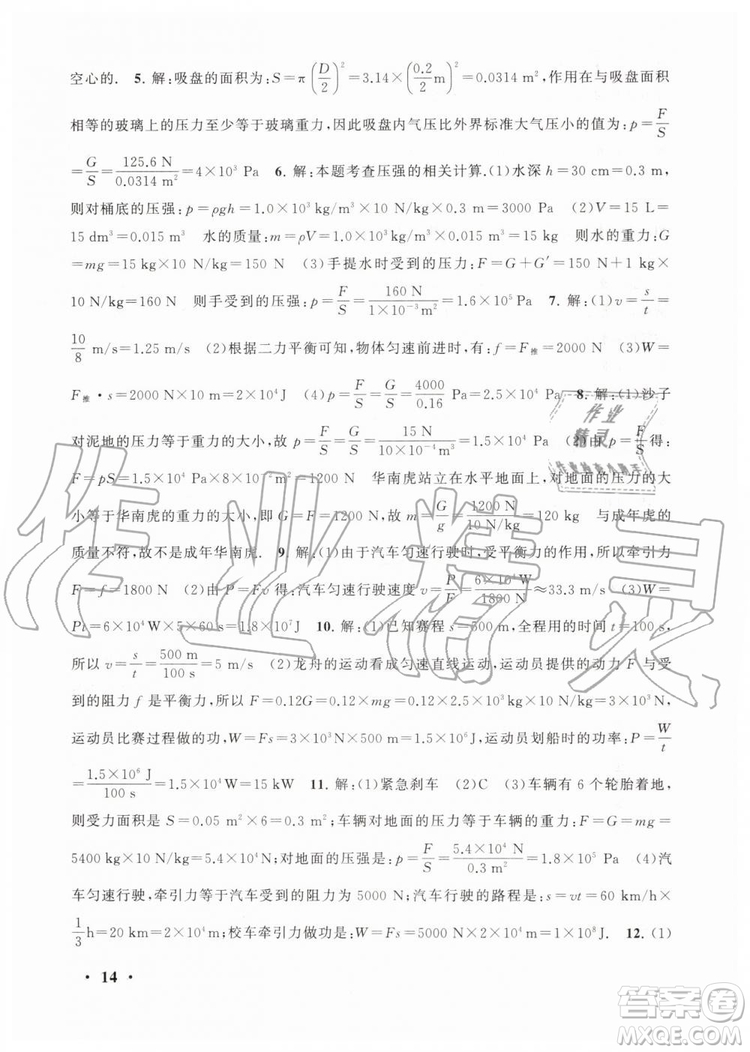 空心的. 5. 解:吸盘的面积为:S=π(D/2)²=3.14×(0.2/2 m)²=0.0314 m²,作用在与吸盘面积
相等的玻璃上的压力至少等于玻璃重力,因此吸盘内气压比外界标准大气压小的值为:p=F/S
=G/S=125.6 N/0.0314 m²=4×10³ Pa 6. 解:本题考查压强的相关计算.(1)水深 h=30 cm=0.3 m,
则对桶底的压强:p=ρgh=1.0×10³ kg/m³×10 N/kg×0.3 m=3000 Pa (2)V=15 L=
15 dm³=0.015 m³ 水的质量:m=ρV=1.0×10³ kg/m³×0.015 m³=15 kg 则水的重力:G
=mg=15 kg×10 N/kg=150 N (3)手提水时受到的压力:F=G+G′=15 kg×10 N/kg+1 kg×
10 N/kg=160 N 则手受到的压强:p=F/S=160 N/1×10⁻³ m²=1.6×10⁵ Pa 7. 解:(1)v=s/t=
10/8 m/s=1.25 m/s (2)根据二力平衡可知,物体匀速前进时,有:f=F推=2000 N (3)W=
F推·s=2000 N×10 m=2×10⁴ J (4)p=F/S=G/S=4000/0.16 Pa=2.5×10⁴ Pa 8. 解:(1)沙子
对泥地的压力等于重力的大小,故 p=F/S=G/S=15 N/10×10⁻⁴ m²=1.5×10⁴ Pa (2)由 p=F/S得:
F=pS=1.5×10⁴ Pa×800×10⁻⁴ m²=1200 N 华南虎站立在水平地面上,对地面的压力的大
小等于华南虎的重力的大小,即 G=F=1200 N,故 m=G/g=1200 N/10 N/kg=120 kg 与成年虎的
质量不符,故不是成年华南虎. 9. 解:(1)由于汽车匀速行驶时,受平衡力的作用,所以牵引力
F=f=1800 N (2)由 P=Fv 得:汽车匀速行驶速度 v=P/F=6×10⁴ W/1800 N≈33.3 m/s (3)W=
Pt=6×10⁴ W×5×60 s=1.8×10⁷ J 10. 解:(1)已知赛程 s=500 m,全程用的时间 t=100 s,
所以 v=s/t=500 m/100 s=5 m/s (2)龙舟的运动看成匀速直线运动,运动员提供的动力 F 与受
到的阻力 f 是平衡力,所以 F=0.12G=0.12×mg=0.12×2.5×10³ kg×10 N/kg=3×10³ N,
运动员比赛过程做的功,W=Fs=3×10³ N×500 m=1.5×10⁶ J,运动员划船时的功率:P=W/t
=1.5×10⁶ J/100 s=1.5×10⁴ W 11. 解:(1)紧急刹车 (2)C (3)车辆有 6 个轮胎着地,
则受力面积是 S=0.05 m²×6=0.3 m²;车辆对地面的压力等于车辆的重力:F=G=mg=
5400 kg×10 N/kg=5.4×10⁴ N;对地面的压强是:p=F/S=5.4×10⁴ N/0.3 m²=1.8×10⁵ Pa (4)汽
车匀速行驶,牵引力等于汽车受到的阻力为 5000 N;汽车行驶的路程是:s=vt=60 km/h×
1/3 h=20 km=2×10⁴ m;校车牵引力做功是:W=Fs=5000 N×2×10⁴ m=1×10⁸ J. 12. (1)
· 14 ·
作业精灵
作业
精灵
答案圈
MXQE.COM